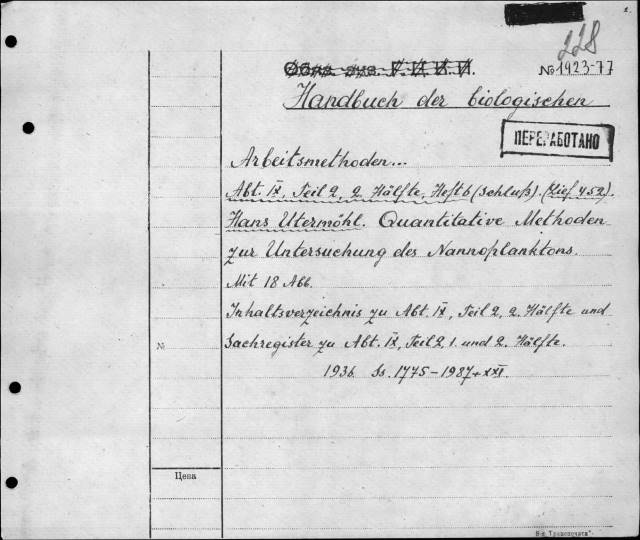 1.
228
№ 1923-77
Handbuch der biologischen
ПЕРЕРАБОТАНО
Arbeitsmethoden...
Abt. IX, Teil 2, 2. Hälfte, Heft 6 (Schluß). (Lief. 452).
Hans Utermöhl. Quantitative Methoden
zur Untersuchung des Nannoplanktons.
Mit 18 Abb.
Inhaltsverzeichnis zu Abt. IX, Teil 2, 2. Hälfte und
Sachregister zu Abt. IX, Teil 2, 1. und 2. Hälfte.
№
1936. Ss. 1775-1987+XXI.
Цена